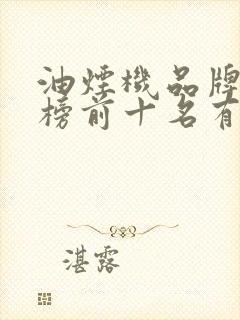 油煙機品牌
榜前十名有
湛露